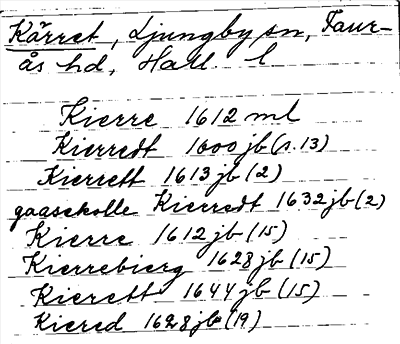 Kärret, Ljungby sn, Faur-
ås hd, Hall. l
Kierre 1612 ml
Kierredt 1600 jb (s. 13)
Kierrett 1613 jb (2)
gaasekolle Kierredt 1632 jb (2)
Kierre 1612 jb (15)
Kierrebierg 1628 jb (15)
Kierett 1644 jb (15)
Kiered 1628 jb (19)